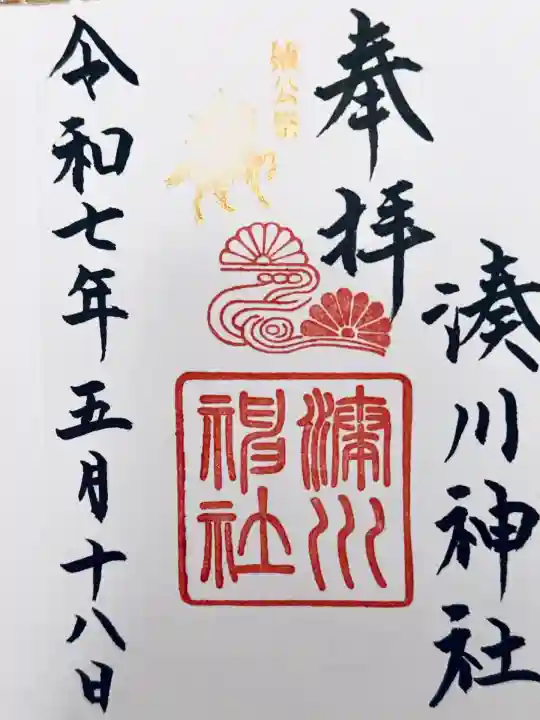 奉拝
湊川神社
楠公祭
湊川
神社
令和七年五月十八日